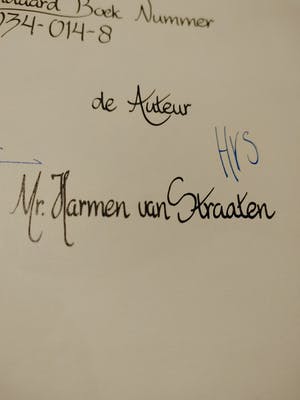 Boek Nummer
034-014-8
de Auteur
HVS
Mr. Harmen van Straaten